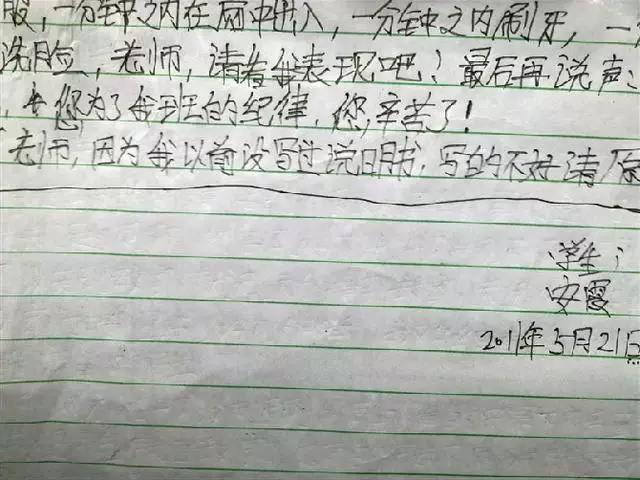 服,一分钟之内在网中出入,一分钟之内刷牙,一
洗脸,老师,请看我表现吧!最后再说声:
,您为了我班的纪律,您,辛苦了!
老师,因为我以前没写过说明书,写的不好请原
学生:
安霞
2011年5月21日